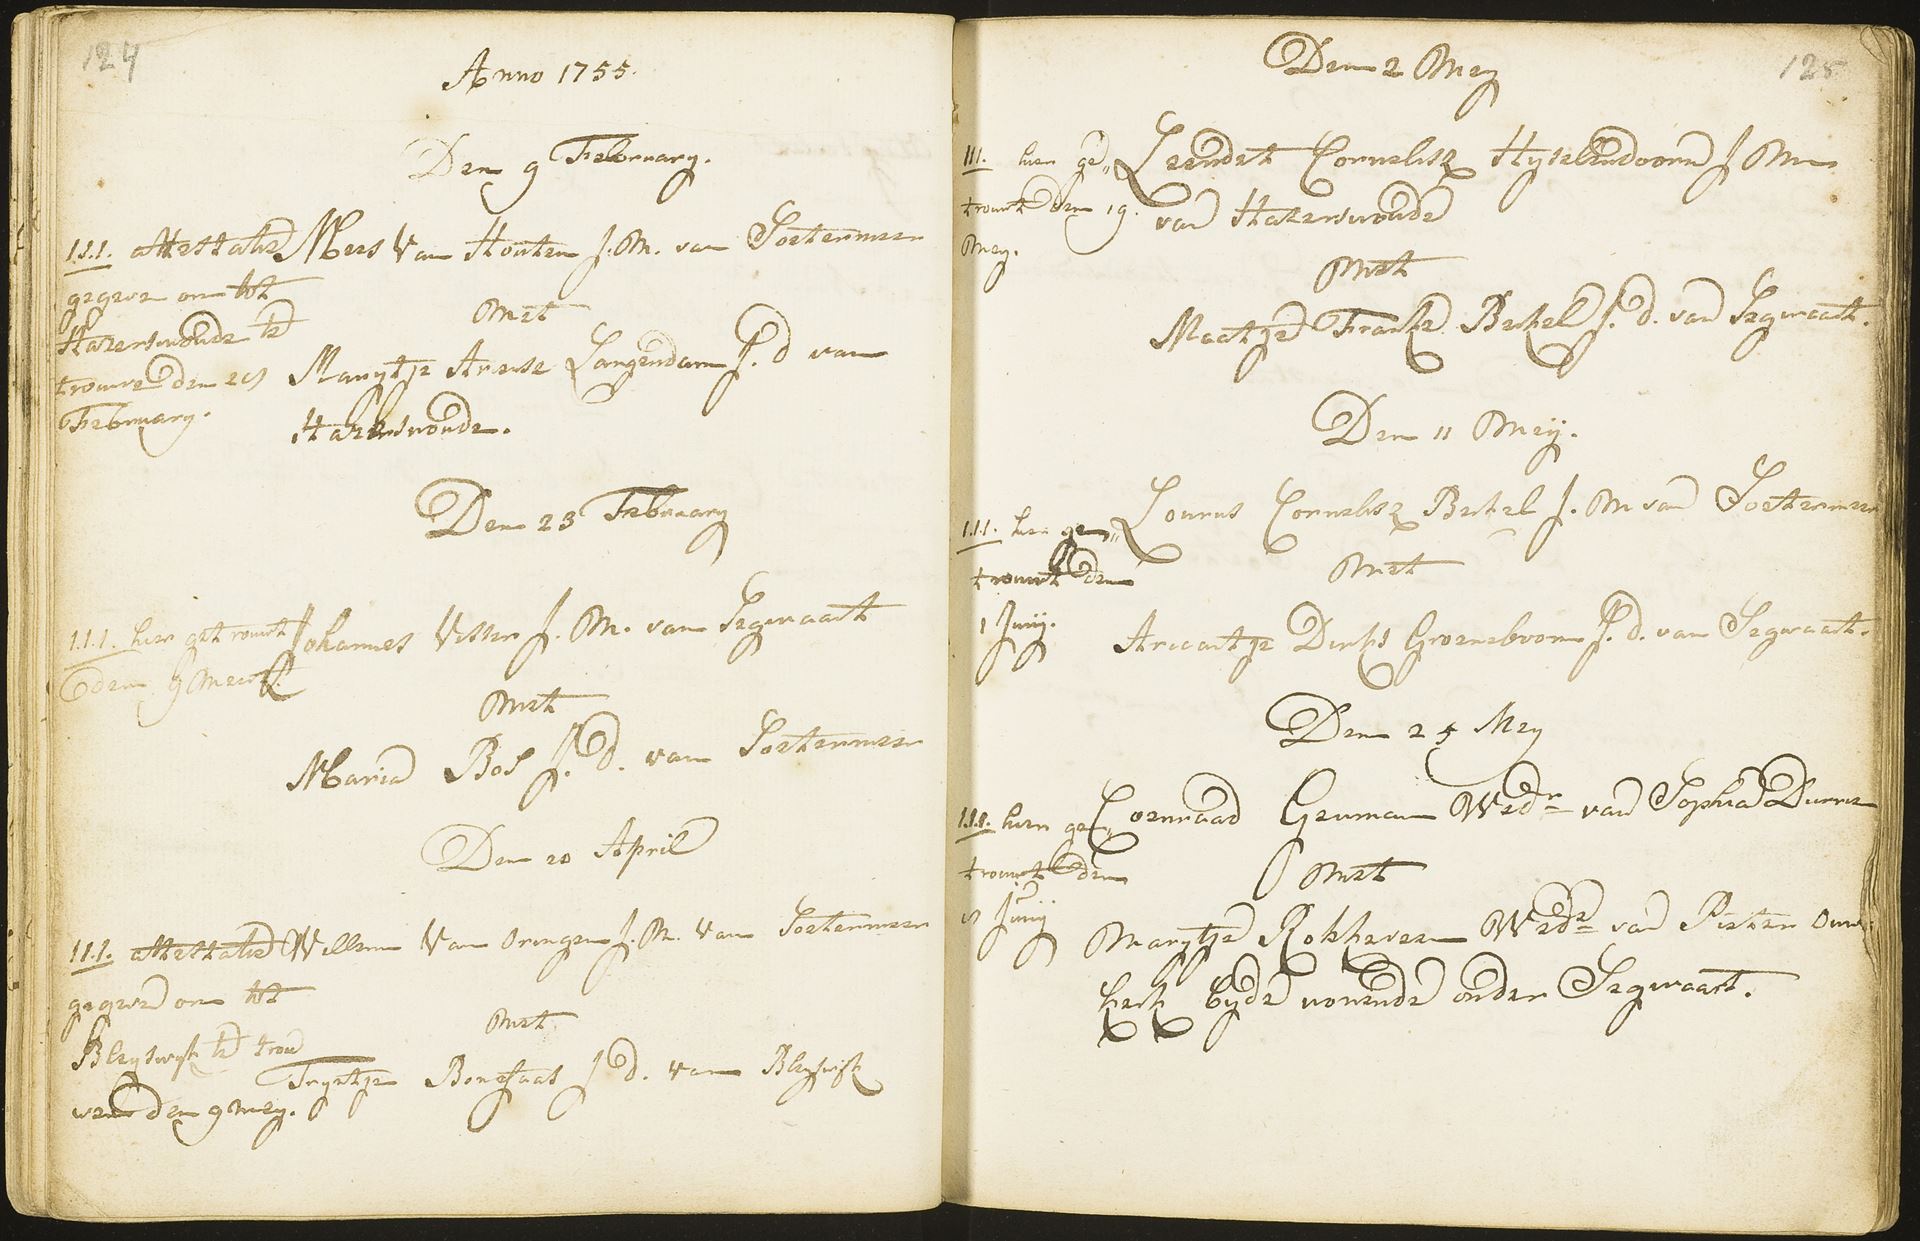 124
Anno 1755.
Den 9 February.
1.1.1. attestatie
gegeve om tot
Hazerswoude te
trouwe den
February.
Mees Van Houten J. M. van Soetermeer
Met
Marytje Arense Langendam J. d van
Hazerswoude.
Den 23 February
1.1.1. hier getrouwt
den 9 Meert.
Johannes Visser J. M. van Segwaart
Met
Maria Bos J. d. van Soetermeer
Den 20 April
1.1.1. attestatie
gegeve om tot
Bleyswyk te trou
wen den 9 mey.
Willem Van Oringen J. M. Van Soetermeer
Met
Tryntje Bonefaas J d. van Bleyswyk
125
Den 2 Mey
111. hier ge„
trouwt den 19.
Mey.
Leendert Cornelisz Hyselendoorn J M
van Hazerswoude
Met
Maatje Frankz Berkel J. d. van Segwaart.
Den 11 Meij.
1.1.1. hier ge„
trouwt den
1 Junij.
Louris Cornelisz Berkel J. M van Soetermeer
Met
Ariaantje Dirks Groeneboom J. d. van Segwaart.
Den 25 Mey
1.1.1. hier ge„
trouwt den
Junij
Coenraad Geuman Wedr van Sophia
Met
Marytje Rokkeveen Wede van Pieter Ouwe
kerk beyde wonende onder Segwaart.